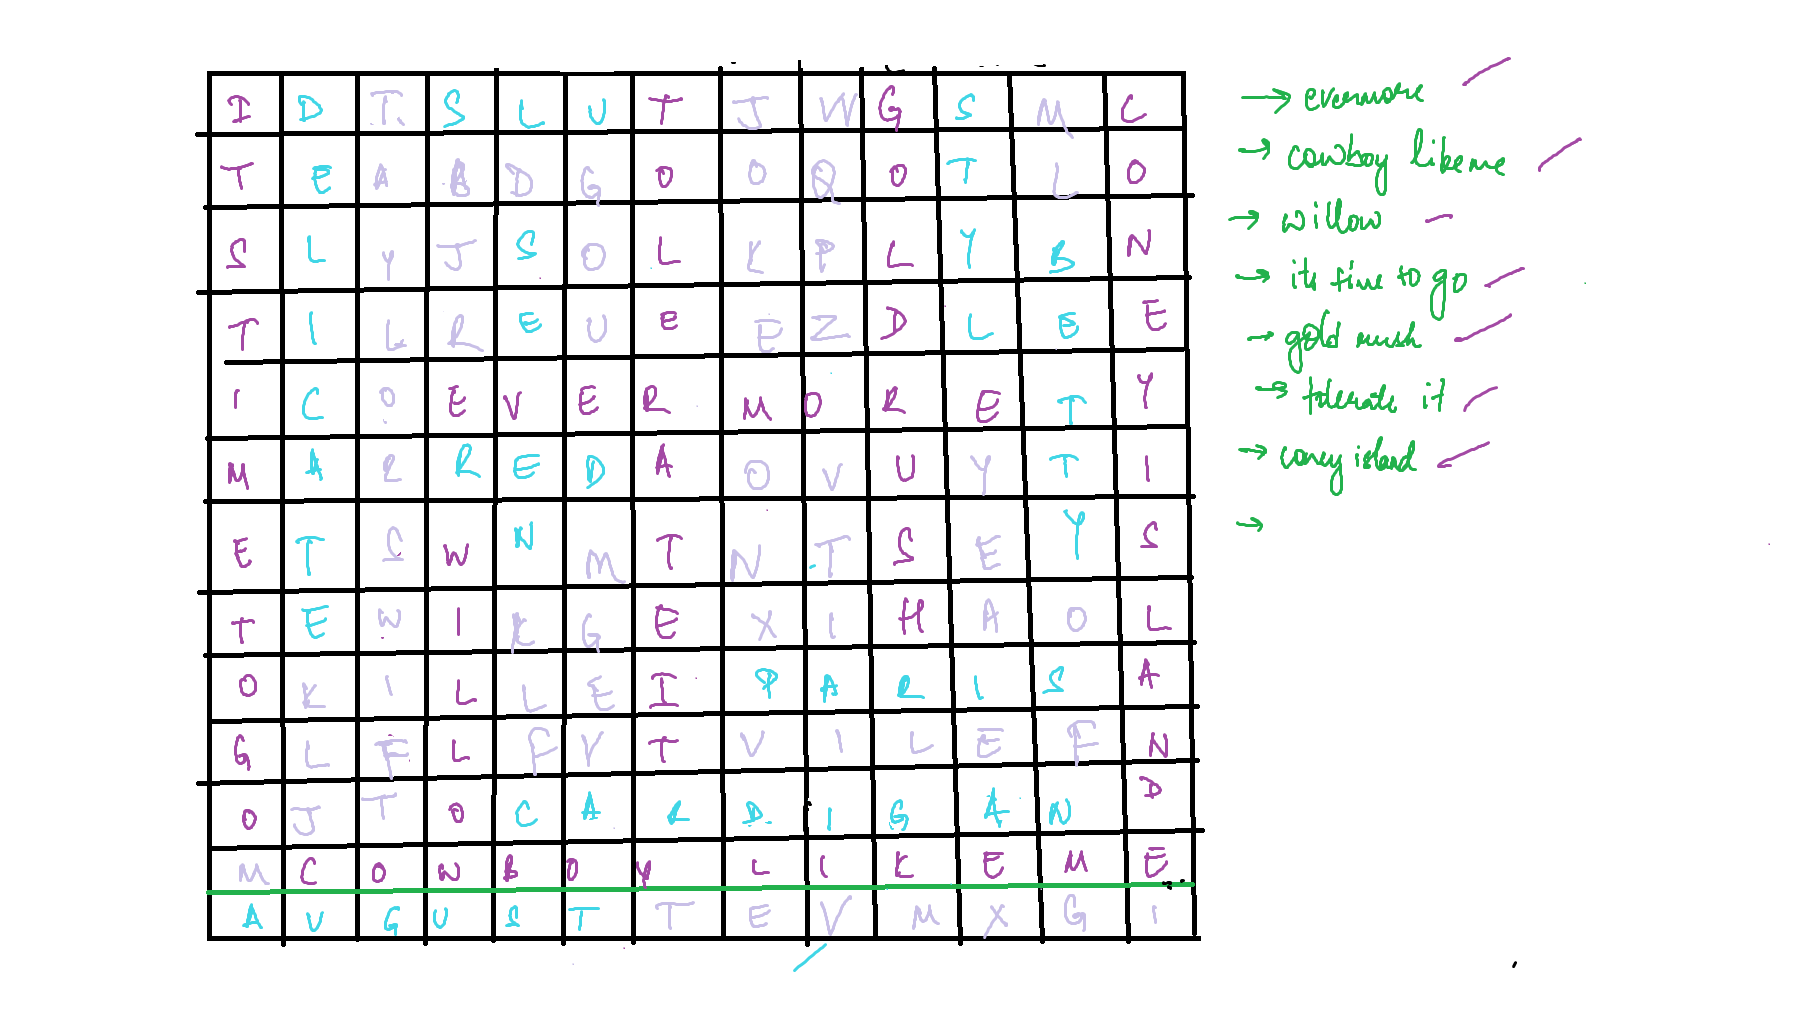 I D T S L U T J W G S M C
T E A B D G O O Q O T L O
S L Y J S O L K P L Y B N
T I L R E U E E Z D L E E
I C O E V E R M O R E T Y
M A R R E D A O V U Y T I
E T S W N M T N T S E Y S
T E W I K G E X I H A O L
O K I L L E I P A R I S A
G L F L F V T V I L E F N
O J T O C A R D I G A N D
M C O W B O Y L I K E M E
A U G U S T T E V M X G I
→ evermore
→ cowboy like me
→ willow
→ its time to go
→ gold rush
→ tolerate it
→ coney island
→